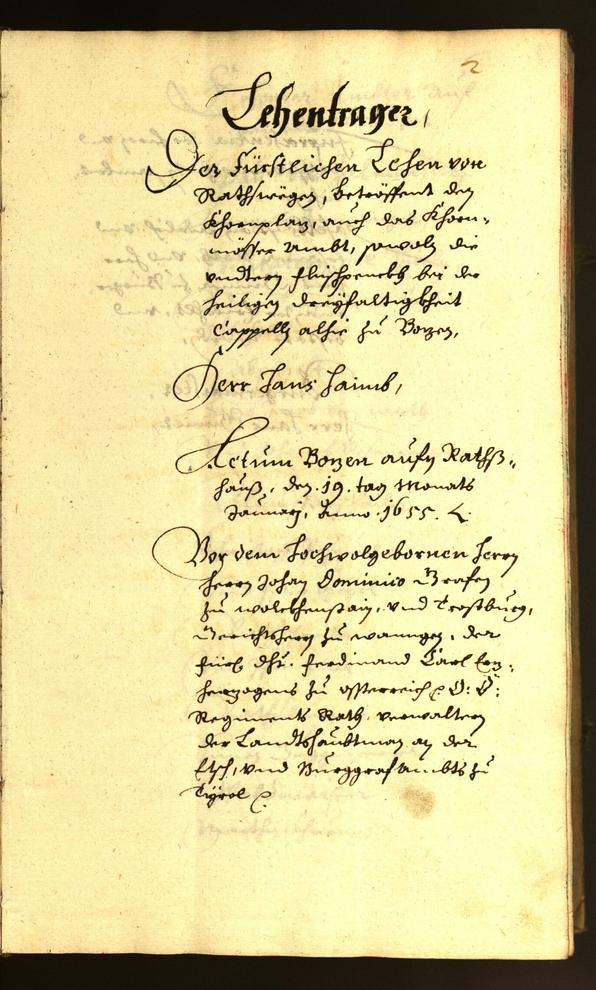 2
Lehentrager,
Der Fürstlichen Lehen von
Rathswegen, betröffent den
Khornplaz, auch das Khorn-
mösser Ambt, sowolh die
vndtern fleischpenckh bei der
heiligen dreyfaltigkheit
Cappelln alhie zu Bozen,
Herr Hans Haimb,
Actum Bozen aufm Rathß-
hauß, den .19. tag Monats
Januarj, Anno .1655.
Vor dem Hochwolgebornen Herrn
Herrn Johan Dominico Grafen
zu Wolckhenstain, vnd Trostburg,
Gerichtsherrn zu Wanngen, der
fürstl. Dht. Ferdinand Carl Erz-
herzogens zu Össterreich O: Ö:
Regiments Rath, verwaltern
der Landtshaubtmanschafft an der
Etsch, vnd Burggrafambts zu
Tyrol